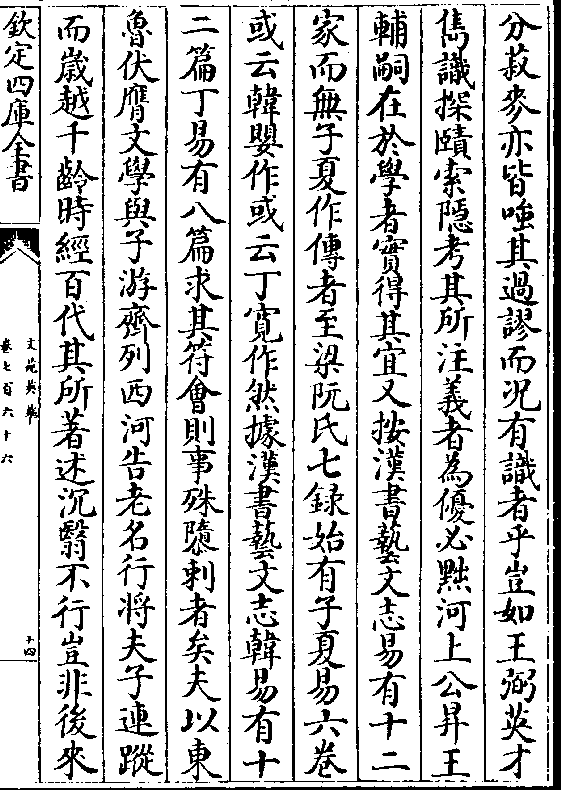 分菽麥亦皆嗤其過謬而況有識者乎豈如王弼英才
雋識探賾索隱考其所注義者為優必黜河上公昇王
輔嗣在於學者實得其宜又按漢書藝文志易有十二
家而無子夏作傳者至梁阮氏七錄始有子夏易六卷
或云韓嬰作或云丁寛作然據漢書藝文志韓易有十
二篇丁易有八篇求其符會則事殊隳剌者矣夫以東
魯伏膺文學與子游齊列西河告老名行將夫子連蹤
而歲越千齡時經百代其所著述沉翳不行豈非後來
欽定四庫全書
文苑英華
卷七百六十六
十四